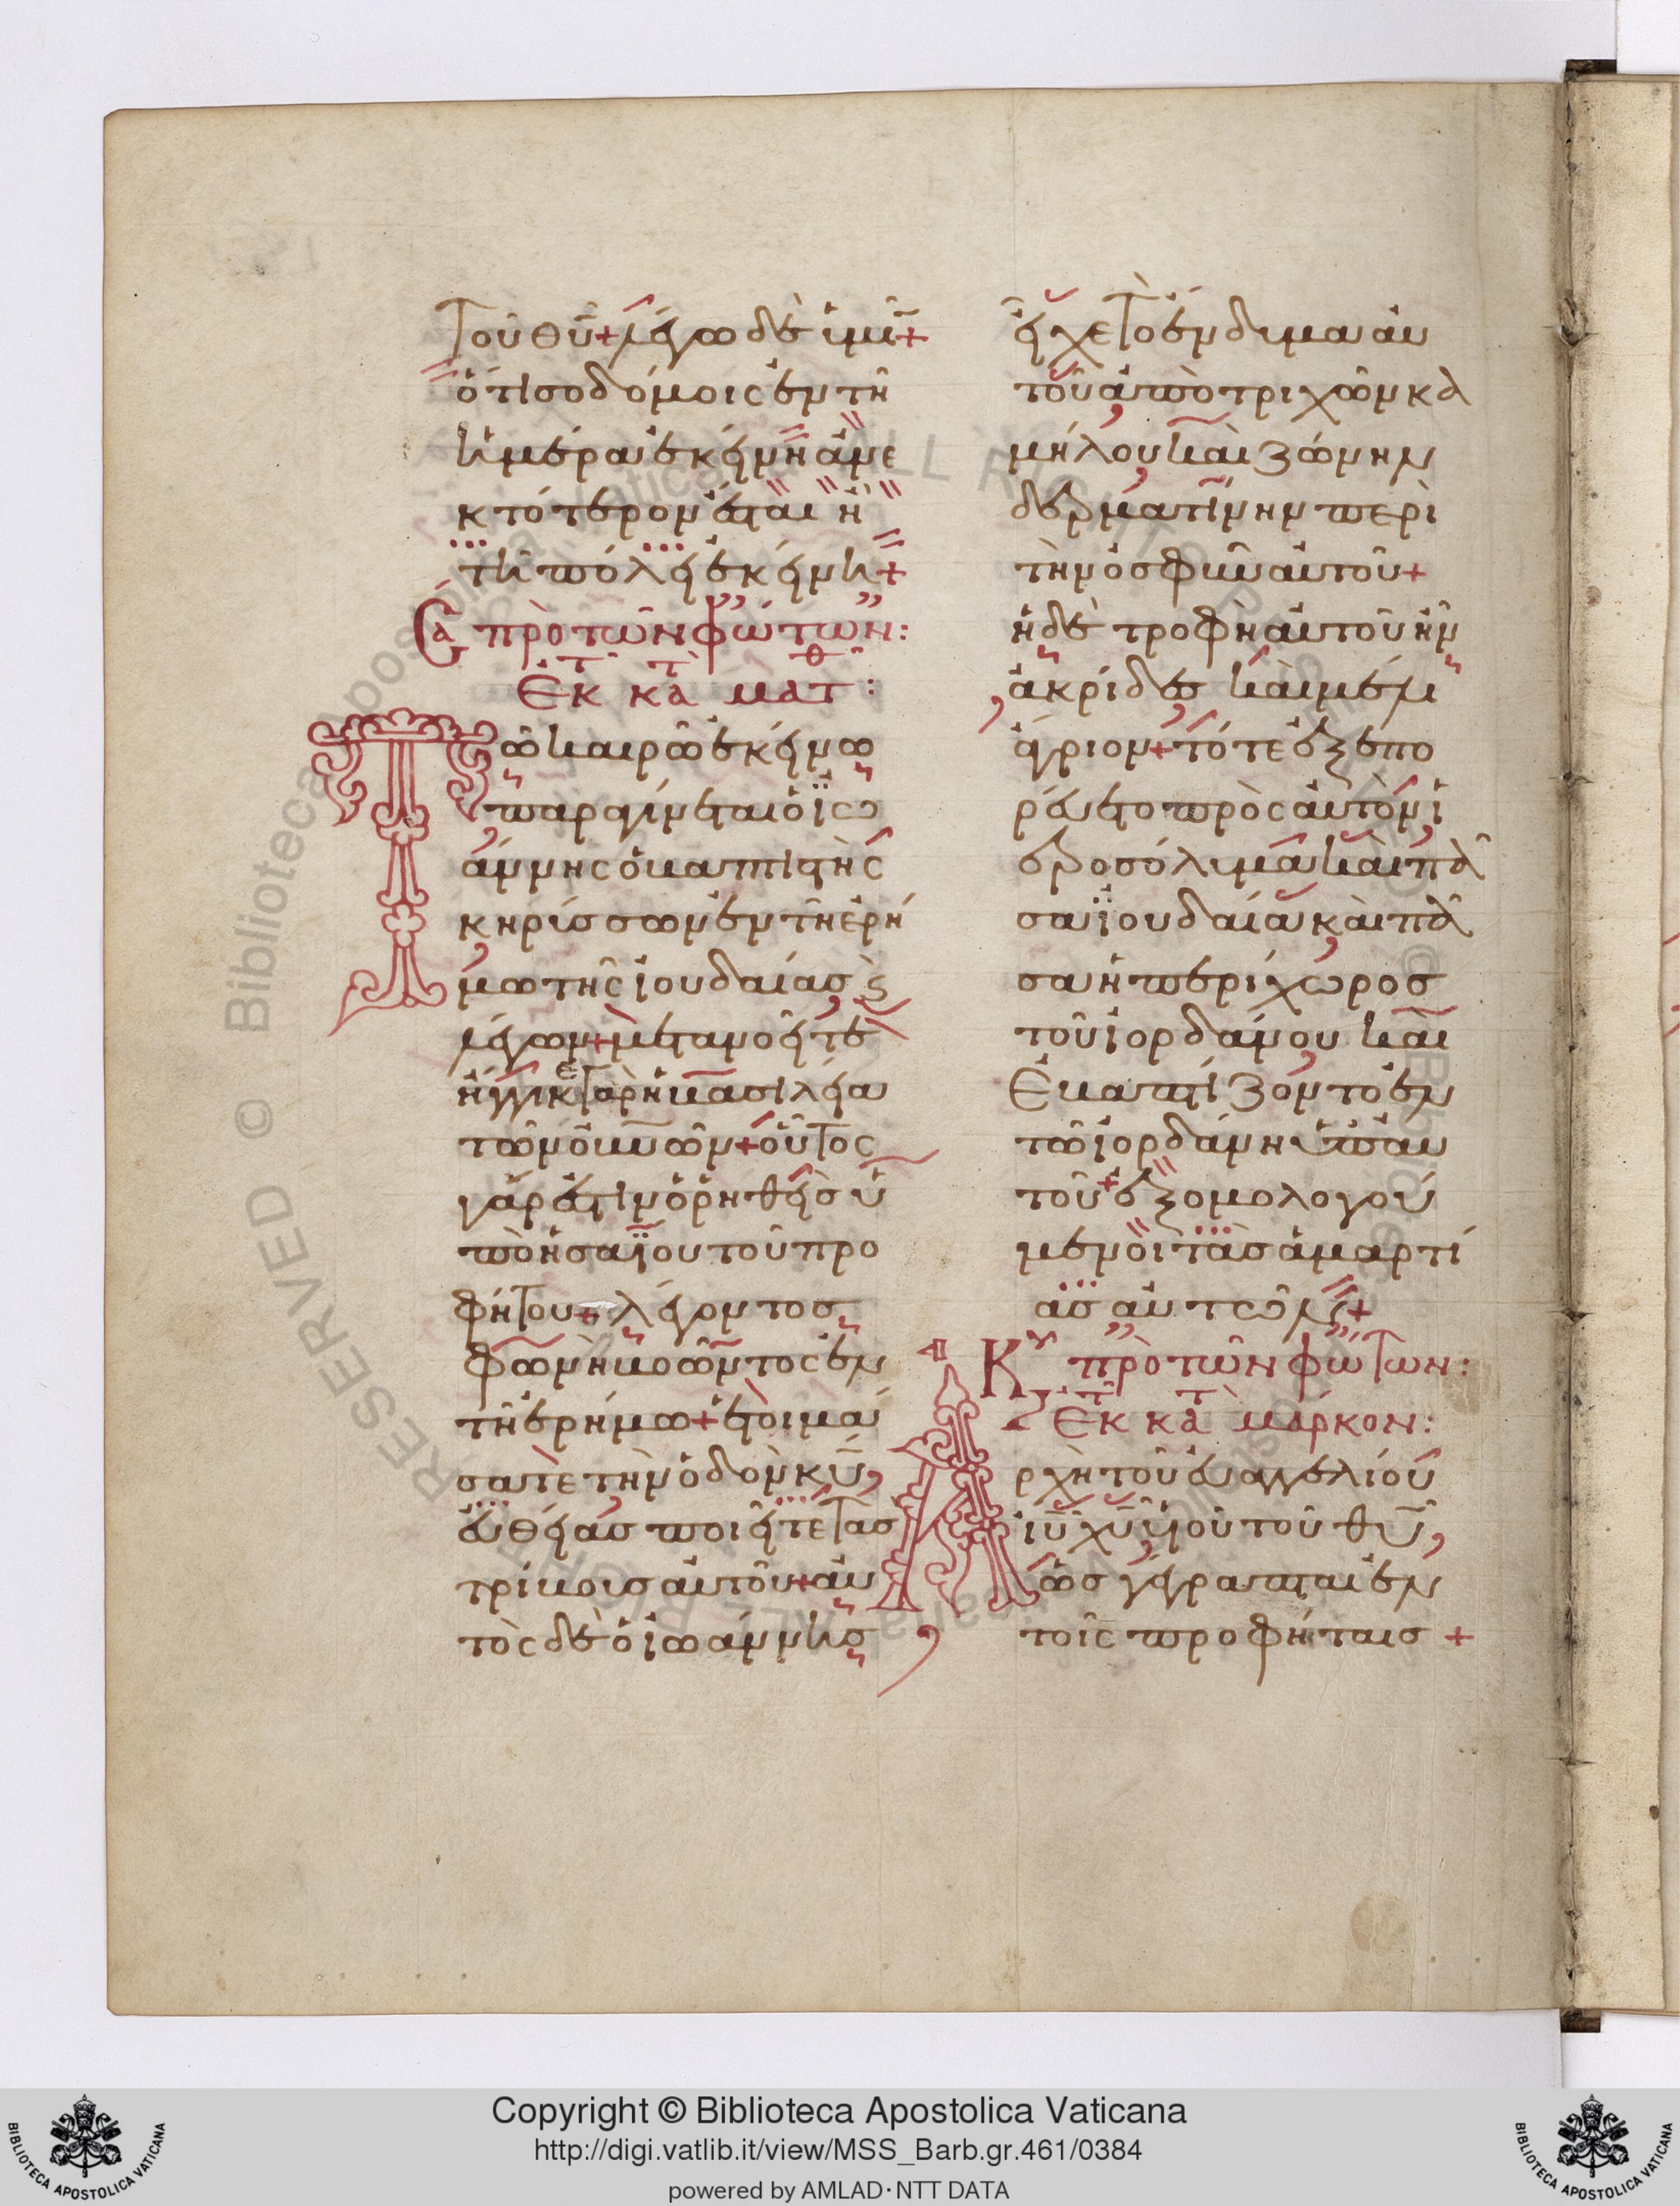 τοῦ θῦ + λέγω δὲ ὑμῖ +
ὅτι σοδόμοις ἐν τῆ
ἡμέρα ἐκείνη ἀνε
κτότερον ἔσται ἢ
τῆ πόλει ἐκείνη +
Σα πρὸ τῶν φώτων :
ἐκ τ κατ ματθ :
Τῶ καιρῶ ἐκείνω
παραγίνεται ὁ ϊω
άννης ὁ βαπτιστὴς
κηρύσσων ἐν τῆ ἐρή
μω τῆς ἰουδαίας ϗ
λέγων + μετανοεῖτε
ἤγγικε γὰρ ἡ βασιλεία
τῶν οὐνῶν + οὗτος
γάρ ἐστιν ὁ ῥηθεὶς ὑ
πὸ ἡσαΐου τοῦ προ
φήτου + λέγοντος
φωνὴ βοῶντος ἐν
τῆ ἐρήμω + ἑτοιμά
σατε τὴν ὁδὸν κῦ,
εὐθείας ποιεῖτε τὰς
τρίβους αὐτοῦ + αὐ
τὸς δὲ ὁ ἰωάννης
εἶχε τὸ ἔνδυμα αὐ
τοῦ ἀπὸ τριχῶν κα
μήλου καὶ ζώνην
δερματίνην περὶ
τὴν ὀσφῦν αὐτοῦ +
ἡ δὲ τροφὴ αὐτοῦ ἦν
ἀκρίδες καὶ μέλι
ἄγριον + τότε ἐξεπο
ρεύετο πρὸς αὐτὸν ἱ
εροσόλυμα καὶ πᾶ
σα ϊουδαία καὶ πᾶ
σα ἡ περίχωρος
τοῦ ἰορδάνου καὶ
ἐβαπτίζοντο ἐν
τῶ ἰορδάνη ὑπ' αὐ
τοῦ + ἐξομολογού
μενοι τὰς ἁμαρτί
ας αὐτῶν +
Κυ πρὸ τῶν φώτων :
ἐκ τ κατ μάρκον :
Ἀρχὴ τοῦ εὐαγγελίου
ἰῦ χῦ υἱοῦ τοῦ θῦ,
ὡς γέγραπται ἐν
τοῖς προφήταις +
Copyright © Biblioteca Apostolica Vaticana
http://digi.vatlib.it/view/MSS_Barb.gr.461/0384
powered by AMLAD·NTT DATA
BIBLIOTECA APOSTOLICA VATICANA
BIBLIOTECA APOSTOLICA VATICANA